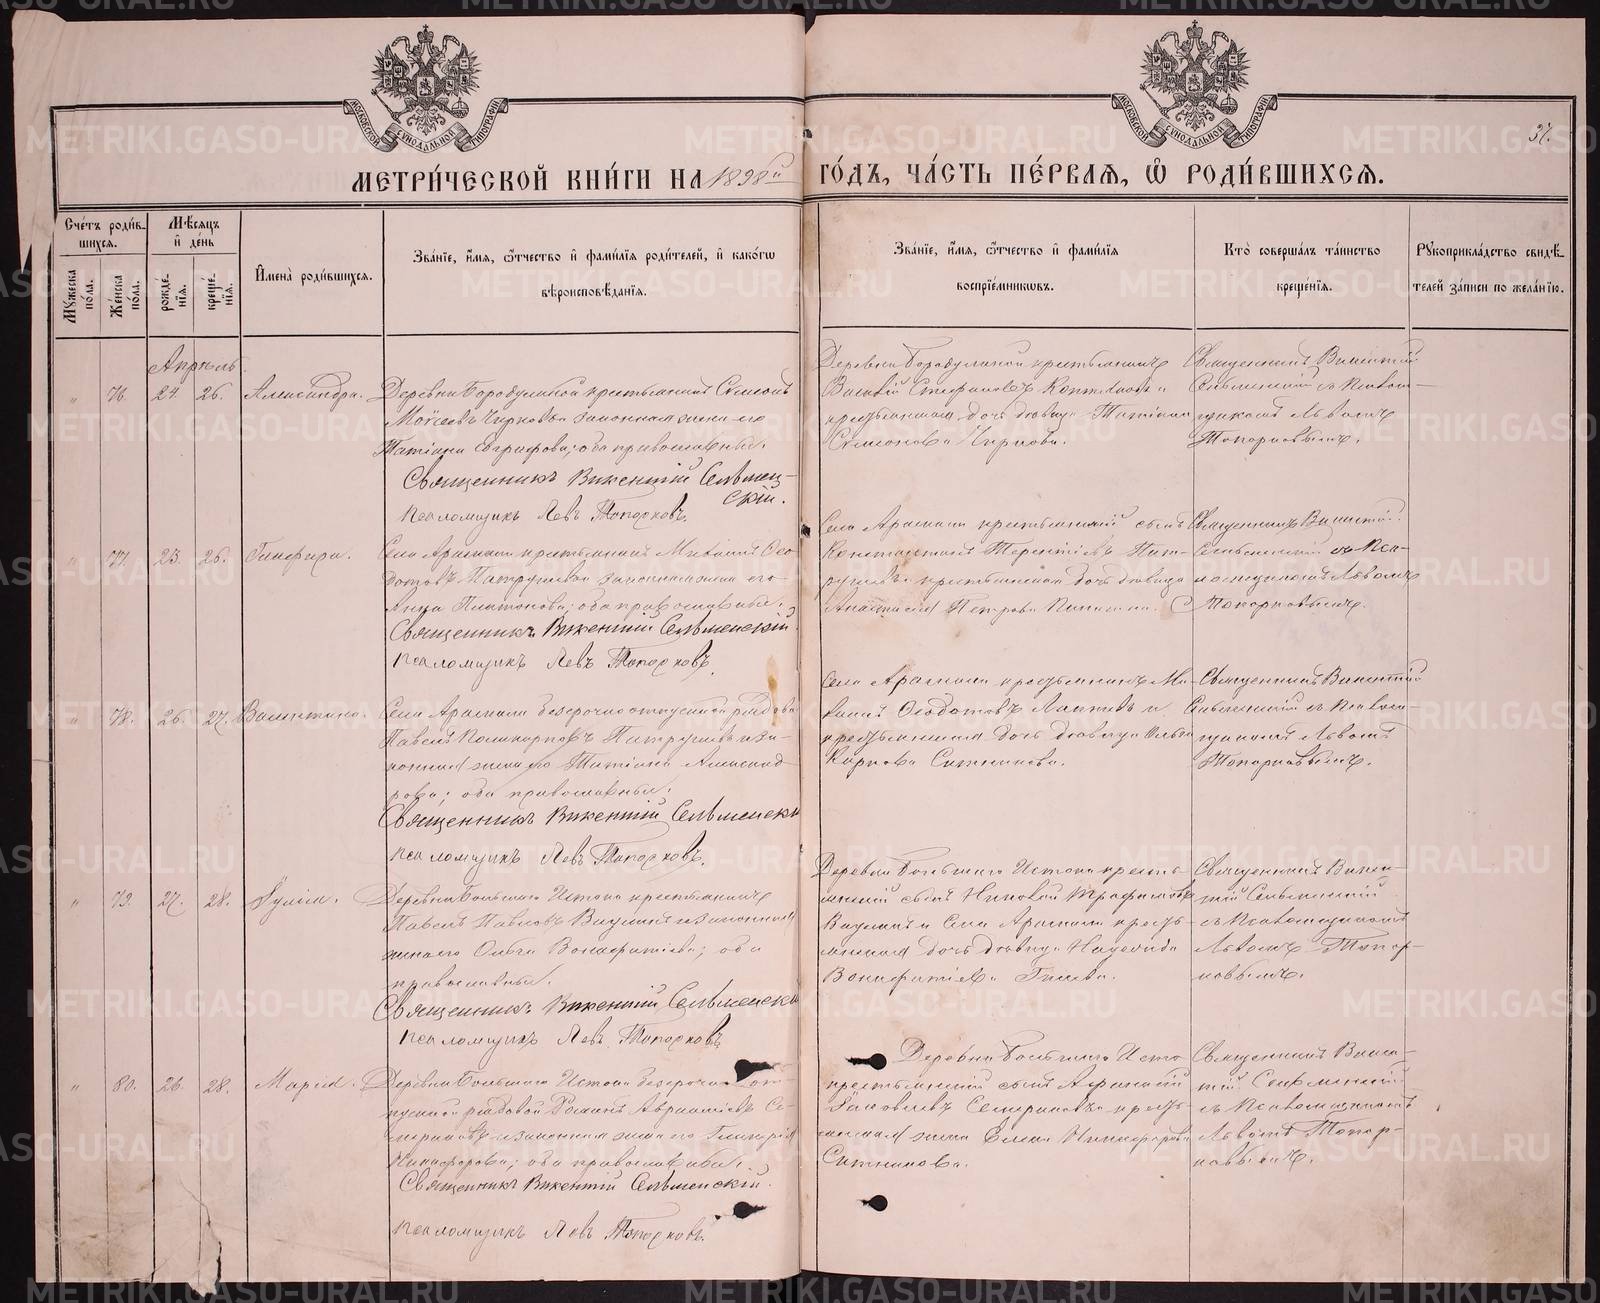 МОСКОВСКОЙ СУНОДАЛЬНОЙ ТИПОГРАФІИ
МОСКОВСКОЙ СУНОДАЛЬНОЙ ТИПОГРАФІИ
37.
МЕТРИ́ЧЕСКОЙ КНИ́ГИ НА 1898й ГО́ДЪ, ЧА́СТЬ ПЕ́РВАЯ, Ѡ РОДИ́ВШИХСЯ.
Сче́тъ роди́в-
шихся.
Мужеска по́ла.
Же́нска по́ла.
Мѣ́сяцъ
и де́нь
рожде́-
нїя.
креще́-
нїя.
И҆мена̀ роди́вшихся.
Зва́нїе, и҆́мя, ѻ҆́тчество и҆ фами́лїя роди́телей, и҆ како́гѡ
вѣроисповѣ́данїя.
Зва́нїе, и҆́мя, ѻ҆́тчество и҆ фами́лїя
воспрїе́мниковъ.
Кто̀ соверша́лъ та́инство
креще́нїя.
Рукоприкла́дство свидѣ́-
телей за́писи по жела́нїю.
Апрѣль.
" 76. 24. 26. Александра.
Деревни Бородулиной крестьянинъ Симеонъ
Моѵсеевъ Чирковъ и законная жена его
Татіана Евграфова; оба православные.
Священникъ Викентій Сельмен-
скій.
Псаломщикъ Левъ Топорковъ.
Деревни Бородулиной крестьянинъ
Василій Стефановъ и
крестьянская дочь дѣвица Татіана
Симеонова Чиркова.
Священникъ Викентій
Сельменскій съ Псалом-
щикомъ Львомъ
Топорковымъ.
" 77. 23. 26. Гликерія.
Села Арамили крестьянинъ Михаилъ Ѳео-
дотовъ Патрушевъ и законная жена его
Анна Платонова; оба православные.
Священникъ Викентій Сельменскій.
Псаломщикъ Левъ Топорковъ.
Села Арамили крестьянскій сынъ
Константинъ Терентіевъ Пат-
рушевъ и крестьянская дочь дѣвица
Анастасія Петрова
Священникъ Викентій
Сельменскій съ Пса-
ломщикомъ Львомъ
Топорковымъ.
" 78. 26. 27. Валентина.
Села Арамили безсрочноотпускной рядовой
Павелъ Поликарповъ Патрушевъ и за-
конная жена его Татіана Александ-
рова; оба православные.
Священникъ Викентій Сельменскій
Псаломщикъ Левъ Топорковъ.
Села Арамили крестьянинъ Ми-
хаилъ Ѳеодотовъ Лаптевъ и
крестьянская дочь дѣвица Ольга
Карпова Ситникова.
Священникъ Викентій
Сельменскій съ Псалом-
щикомъ Львомъ
Топорковымъ.
" 79. 27. 28. Юлія.
Деревни Большаго Истока крестьянинъ
Павелъ Павловъ и законная
жена его Ольга Вонифатіева; оба
православные.
Священникъ Викентій Сельменскій
Псаломщикъ Левъ Топорковъ
Деревни Большаго Истока кресть-
янскій сынъ Николай Трофимовъ
и Села Арамили кресть-
янская дочь дѣвица Надежда
Вонифатіева
Священникъ Викен-
тій Сельменскій
съ Псаломщикомъ
Львомъ Топор-
ковымъ.
" 80. 26. 28. Марія.
Деревни Большаго Истока безсрочно от-
пускной рядовой Романъ Се-
и законная жена его Гликерія
Никифорова; оба православные.
Священникъ Викентій Сельменскій.
Псаломщикъ Левъ Топорковъ.
Деревни Большаго Исто
крестьянскій сынъ Аѳанасій
Іаковлевъ и кресть-
янская жена Елена Никифорова
Ситникова.
Священникъ Викен-
тій Сельменскій
съ Псаломщикомъ
Львомъ Топор-
ковымъ.
METRIKI.GASO-URAL.RU